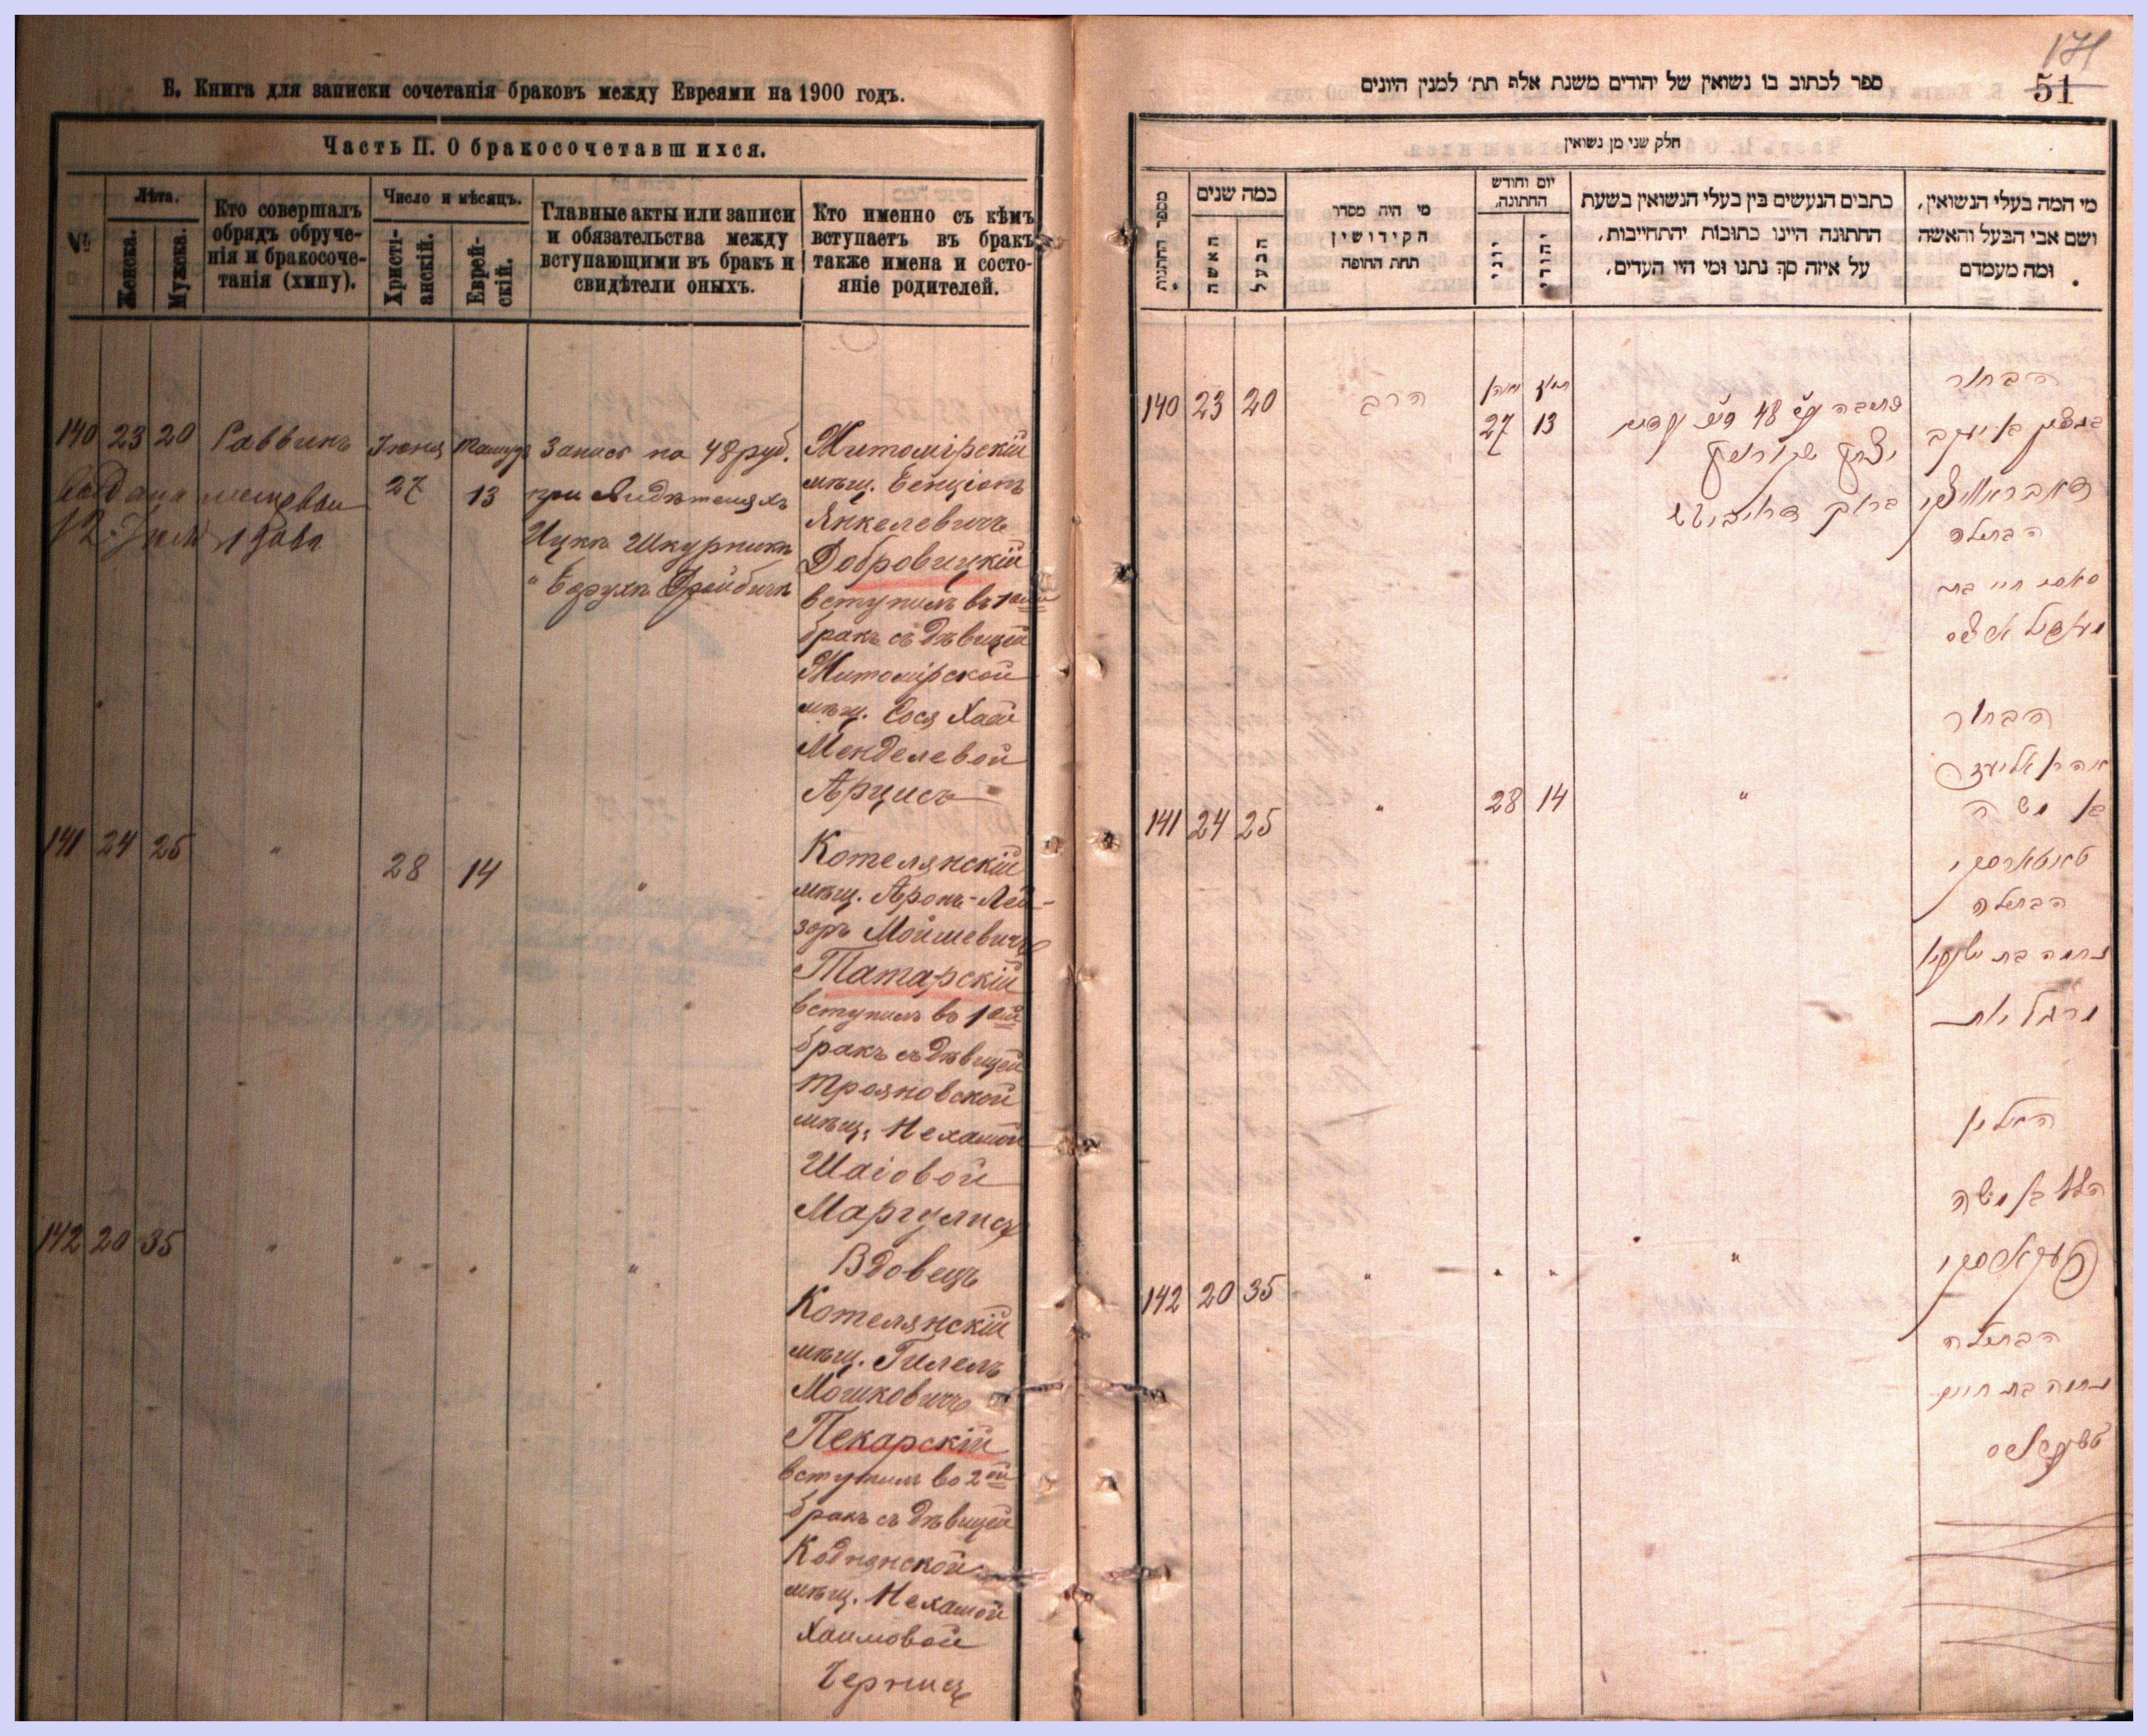 Б. Книга для записки сочетанія браковъ между Евреями на 1900 годъ.
Часть II. О бракосочетавшихся.
№
Лѣта.
Женска.
Мужска.
Кто совершалъ
обрядъ обруче-
нія и бракосоче-
танія (хипу).
Число и мѣсяцъ.
Христі-
анскій.
Еврей-
скій.
Главные акты или записи
и обязательства между
вступающими въ бракъ и
свидѣтели оныхъ.
Кто именно съ кѣмъ
вступаетъ въ бракъ
также имена и состо-
яніе родителей.
140 23 20 Раввинъ Іюня 27 13 Запись на 48 руб.
при свидѣтеляхъ
Ицко Шкурникъ
" Борухъ
12 Іюля
Житомірскій
мѣщ. Бенціонъ
Янкелевичъ
Добровицкій
вступилъ въ 1ый
бракъ съ дѣвицей
Житомірской
мѣщ. Сося Хаей
Менделевой
Арцисъ
141 24 25 " 28 14 "
Котелянскій
мѣщ. Аронъ-Лей-
зоръ Мойшевичъ
Татарскій
вступилъ въ 1ый
бракъ съ дѣвицей
Трояновской
мѣщ. Нехамой
Шаіовой
Маргулисъ
142 20 35 " " " "
Вдовецъ
Котелянскій
мѣщ. Гилелъ
Мошковичъ
Пекарскій
вступилъ во 2ой
бракъ съ дѣвицей
Коднянской
мѣщ. Нехамой
Хаимовой
171
51
ספר לכתוב בו נשואין של יהודים משנת אלף תת׳ למנין היונים
חלק שני מן נשואין
מספר החתונות
כמה שנים
האשה
הבעל
מי היה מסדר
הקידושין
תחת החופה
יום וחודש
החתונה,
יוני
יהודי
כתבים הנעשים בין בעלי הנשואין בשעת
החתונה היינו כתובות יהתחייבות,
על איזה סך נתנו ומי היו העדים,
מי המה בעלי הנשואין,
ושם אבי הבעל והאשה
ומה מעמדם
140 23 20 הרב 27 13
הבחור
בן יעקב
הבתולה
141 24 25 " 28 14 "
הבחור
אהרן אליעזר
בן משה
טאטארסקי
הבתולה
נחמה בת
מרגליות
142 20 35 " " " "
האלמן
הלל בן משה
פעקארסקי
הבתולה
נחמה בת חיים